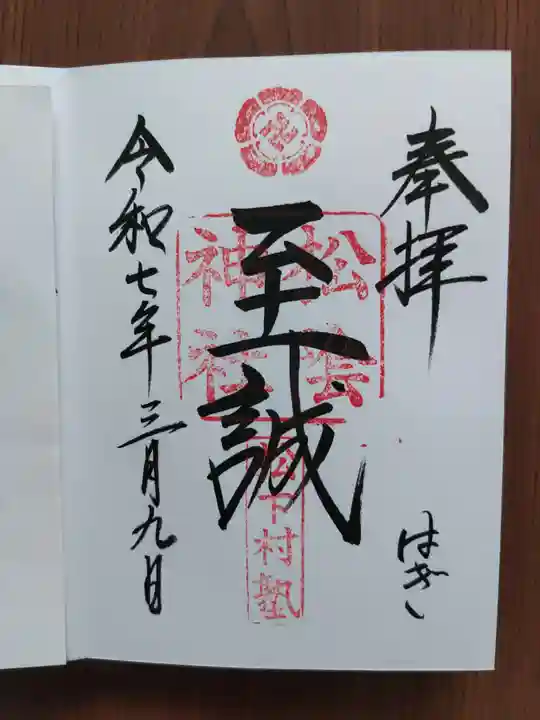 奉拝
はぎし
至誠
松陰
神社
松下村塾
令和七年三月九日